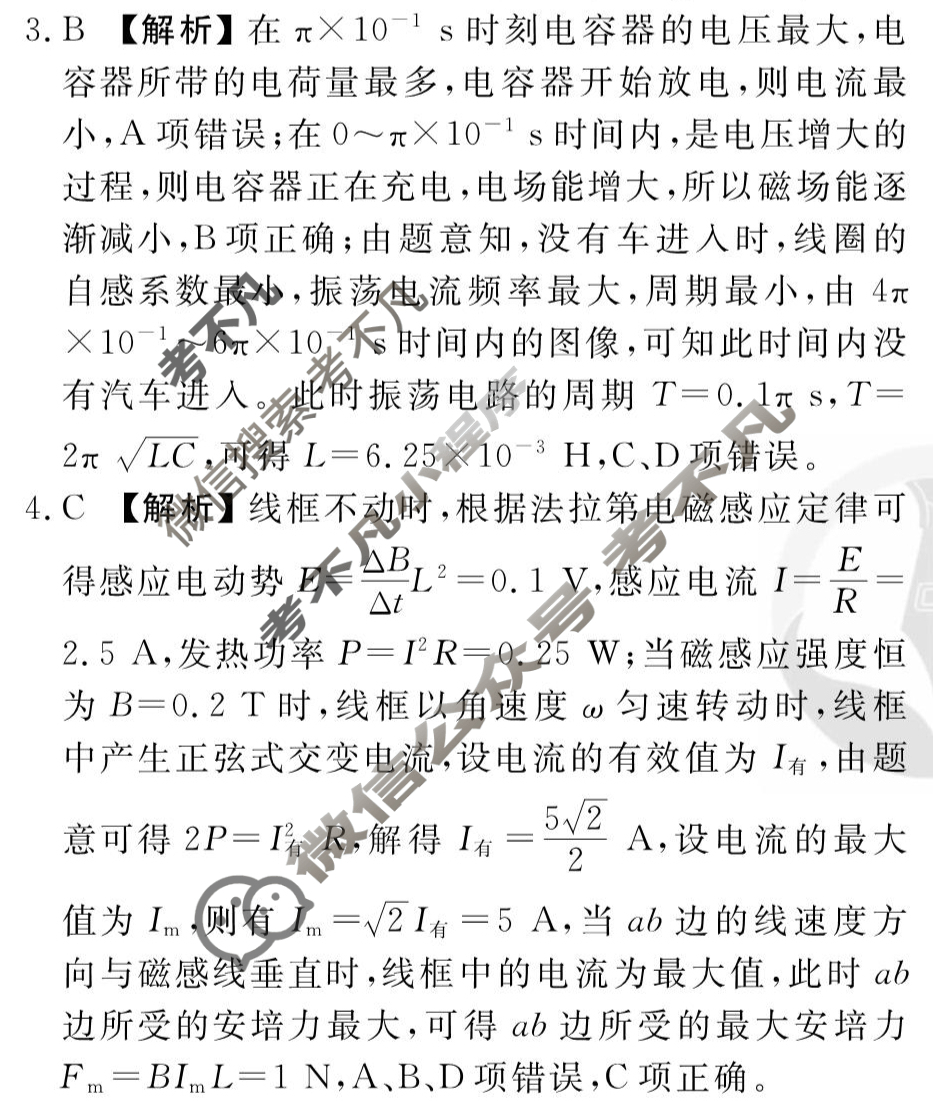 3. B 【解析】在 π×10⁻¹ s 时刻电容器的电压最大,电
容器所带的电荷量最多,电容器开始放电,则电流最
小,A 项错误;在 0～π×10⁻¹ s 时间内,是电压增大的
过程,则电容器正在充电,电场能增大,所以磁场能逐
渐减小,B 项正确;由题意知,没有车进入时,线圈的
自感系数最小,振荡电流频率最大,周期最小,由 4π
×10⁻¹～6π×10⁻¹ s 时间内的图像,可知此时间内没
有汽车进入。此时振荡电路的周期 T=0.1π s,T=
2π √LC,可得 L=6.25×10⁻³ H,C、D 项错误。
4. C 【解析】线框不动时,根据法拉第电磁感应定律可
得感应电动势 E=ΔB/Δt L²=0.1 V,感应电流 I=E/R=
2.5 A,发热功率 P=I²R=0.25 W;当磁感应强度恒
为 B=0.2 T 时,线框以角速度 ω 匀速转动时,线框
中产生正弦式交变电流,设电流的有效值为 I有,由题
意可得 2P=I有² R,解得 I有=5√2/2 A,设电流的最大
值为 Iₘ,则有 Iₘ=√2 I有=5 A,当 ab 边的线速度方
向与磁感线垂直时,线框中的电流为最大值,此时 ab
边所受的安培力最大,可得 ab 边所受的最大安培力
Fₘ=BIₘL=1 N,A、B、D 项错误,C 项正确。
考不凡
微信搜索考不凡
考不凡小程序
微信公众号 考不凡